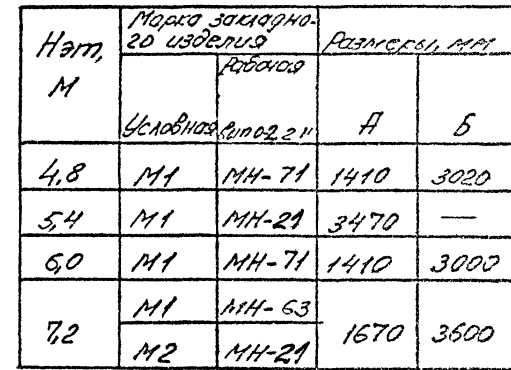 Нэт, М Марка закладно- Размеры, мм
го изделия
Условная Рабочая А Б
4,8 М1 МН-71 1410 3020
5,4 М1 МН-21 3470 —
6,0 М1 МН-71 1410 3000
7,2 М1 МН-63 1670 3600
М2 МН-21